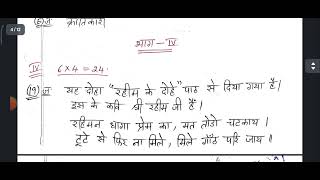 4 / 12
भाग - IV
IV 6 x 4 = 24.
(19) ज यह दोहा "रहीम के दोहे" पाठ से दिया गया है।
इस के कवि श्री रहीम जी हैं।
रहिमन धागा प्रेम का, मत तोडो चटकाय।
टूटे से फिर ना मिले, मिले गाँठ परि जाय॥